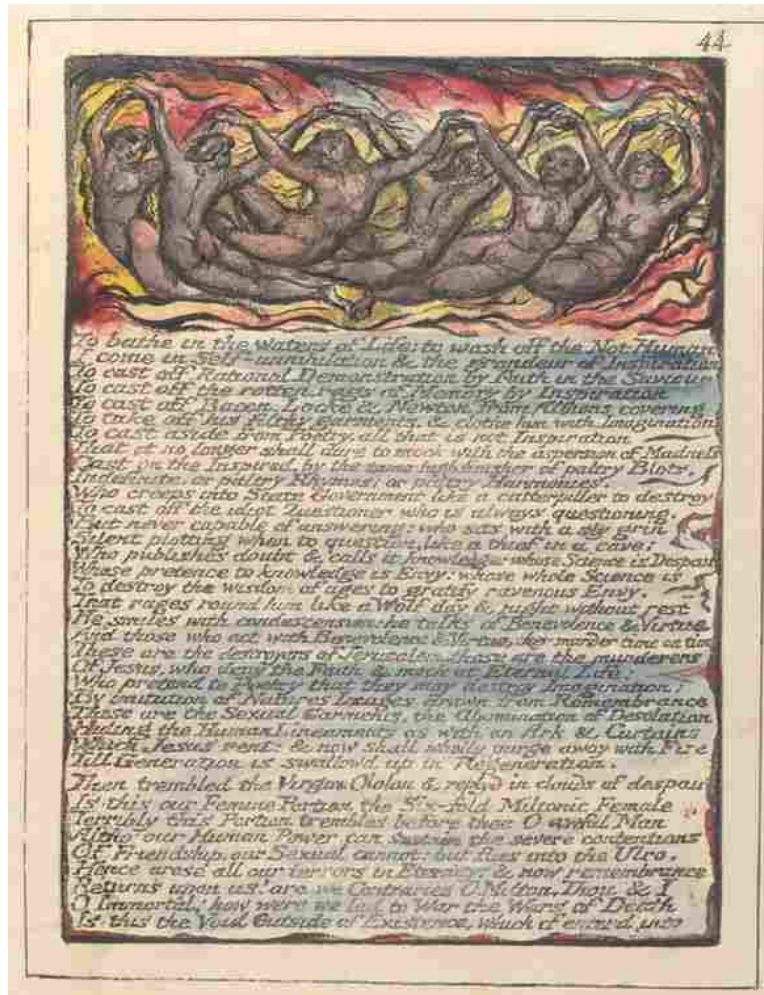 44
To bathe in the Waters of Life; to wash off the Not Human
I come in Self-annihilation & the grandeur of Inspiration
To cast off Rational Demonstration by Faith in the Saviour
To cast off the rotten rags of Memory by Inspiration
To cast off Bacon, Locke & Newton from Albions covering
To take off his filthy garments, & clothe him with Imagination
To cast aside from Poetry, all that is not Inspiration
That it no longer shall dare to mock with the aspersion of Madness
Cast on the Inspired, by the tame high finisher of paltry Blots,
Indefinite, or paltry Rhymes; or paltry Harmonies.
Who creeps into State Government like a catterpiller to destroy
To cast off the idiot Questioner who is always questioning,
But never capable of answering; who sits with a sly grin
Silent plotting when to question, like a thief in a cave;
Who publishes doubt & calls it knowledge; whose Science is Despair
Whose pretence to knowledge is Envy: whose whole Science is
To destroy the wisdom of ages to gratify ravenous Envy.
That rages round him like a Wolf day & night without rest
He smiles with condescension; he talks of Benevolence & Virtue
And those who act with Benevolence & Virtue, they murder time on time
These are the destroyers of Jerusalem, these are the murderers
Of Jesus, who deny the Faith & mock at Eternal Life:
Who pretend to Poetry that they may destroy Imagination;
By imitation of Natures Images drawn from Remembrance
These are the Sexual Garments, the Abomination of Desolation
Hiding the Human Lineaments as with an Ark & Curtains
Which Jesus rent: & now shall wholly purge away with Fire
Till Generation is swallowd up in Regeneration.
Then trembled the Virgin Ololon & replyd in clouds of despair
Is this our Femine Portion the Six-fold Miltonic Female
Terribly this Portion trembles before thee O awful Man
Altho' our Human Power can sustain the severe contentions
Of Friendship, our Sexual cannot: but flies into the Ulro.
Hence arose all our terrors in Eternity! & now remembrance
Returns upon us! are we Contraries O Milton, Thou & I
O Immortal! how were we led to War the Wars of Death
Is this the Void Outside of Existence, which if enter'd into